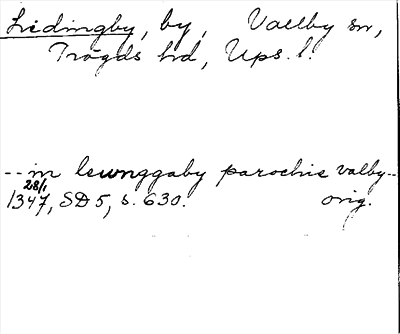 Lidingby, by, Vallby sn,
Trögds hd, Ups. l.
-- in lewnggaby parochie valby --
28/1
1347, SD 5, s. 630. orig.